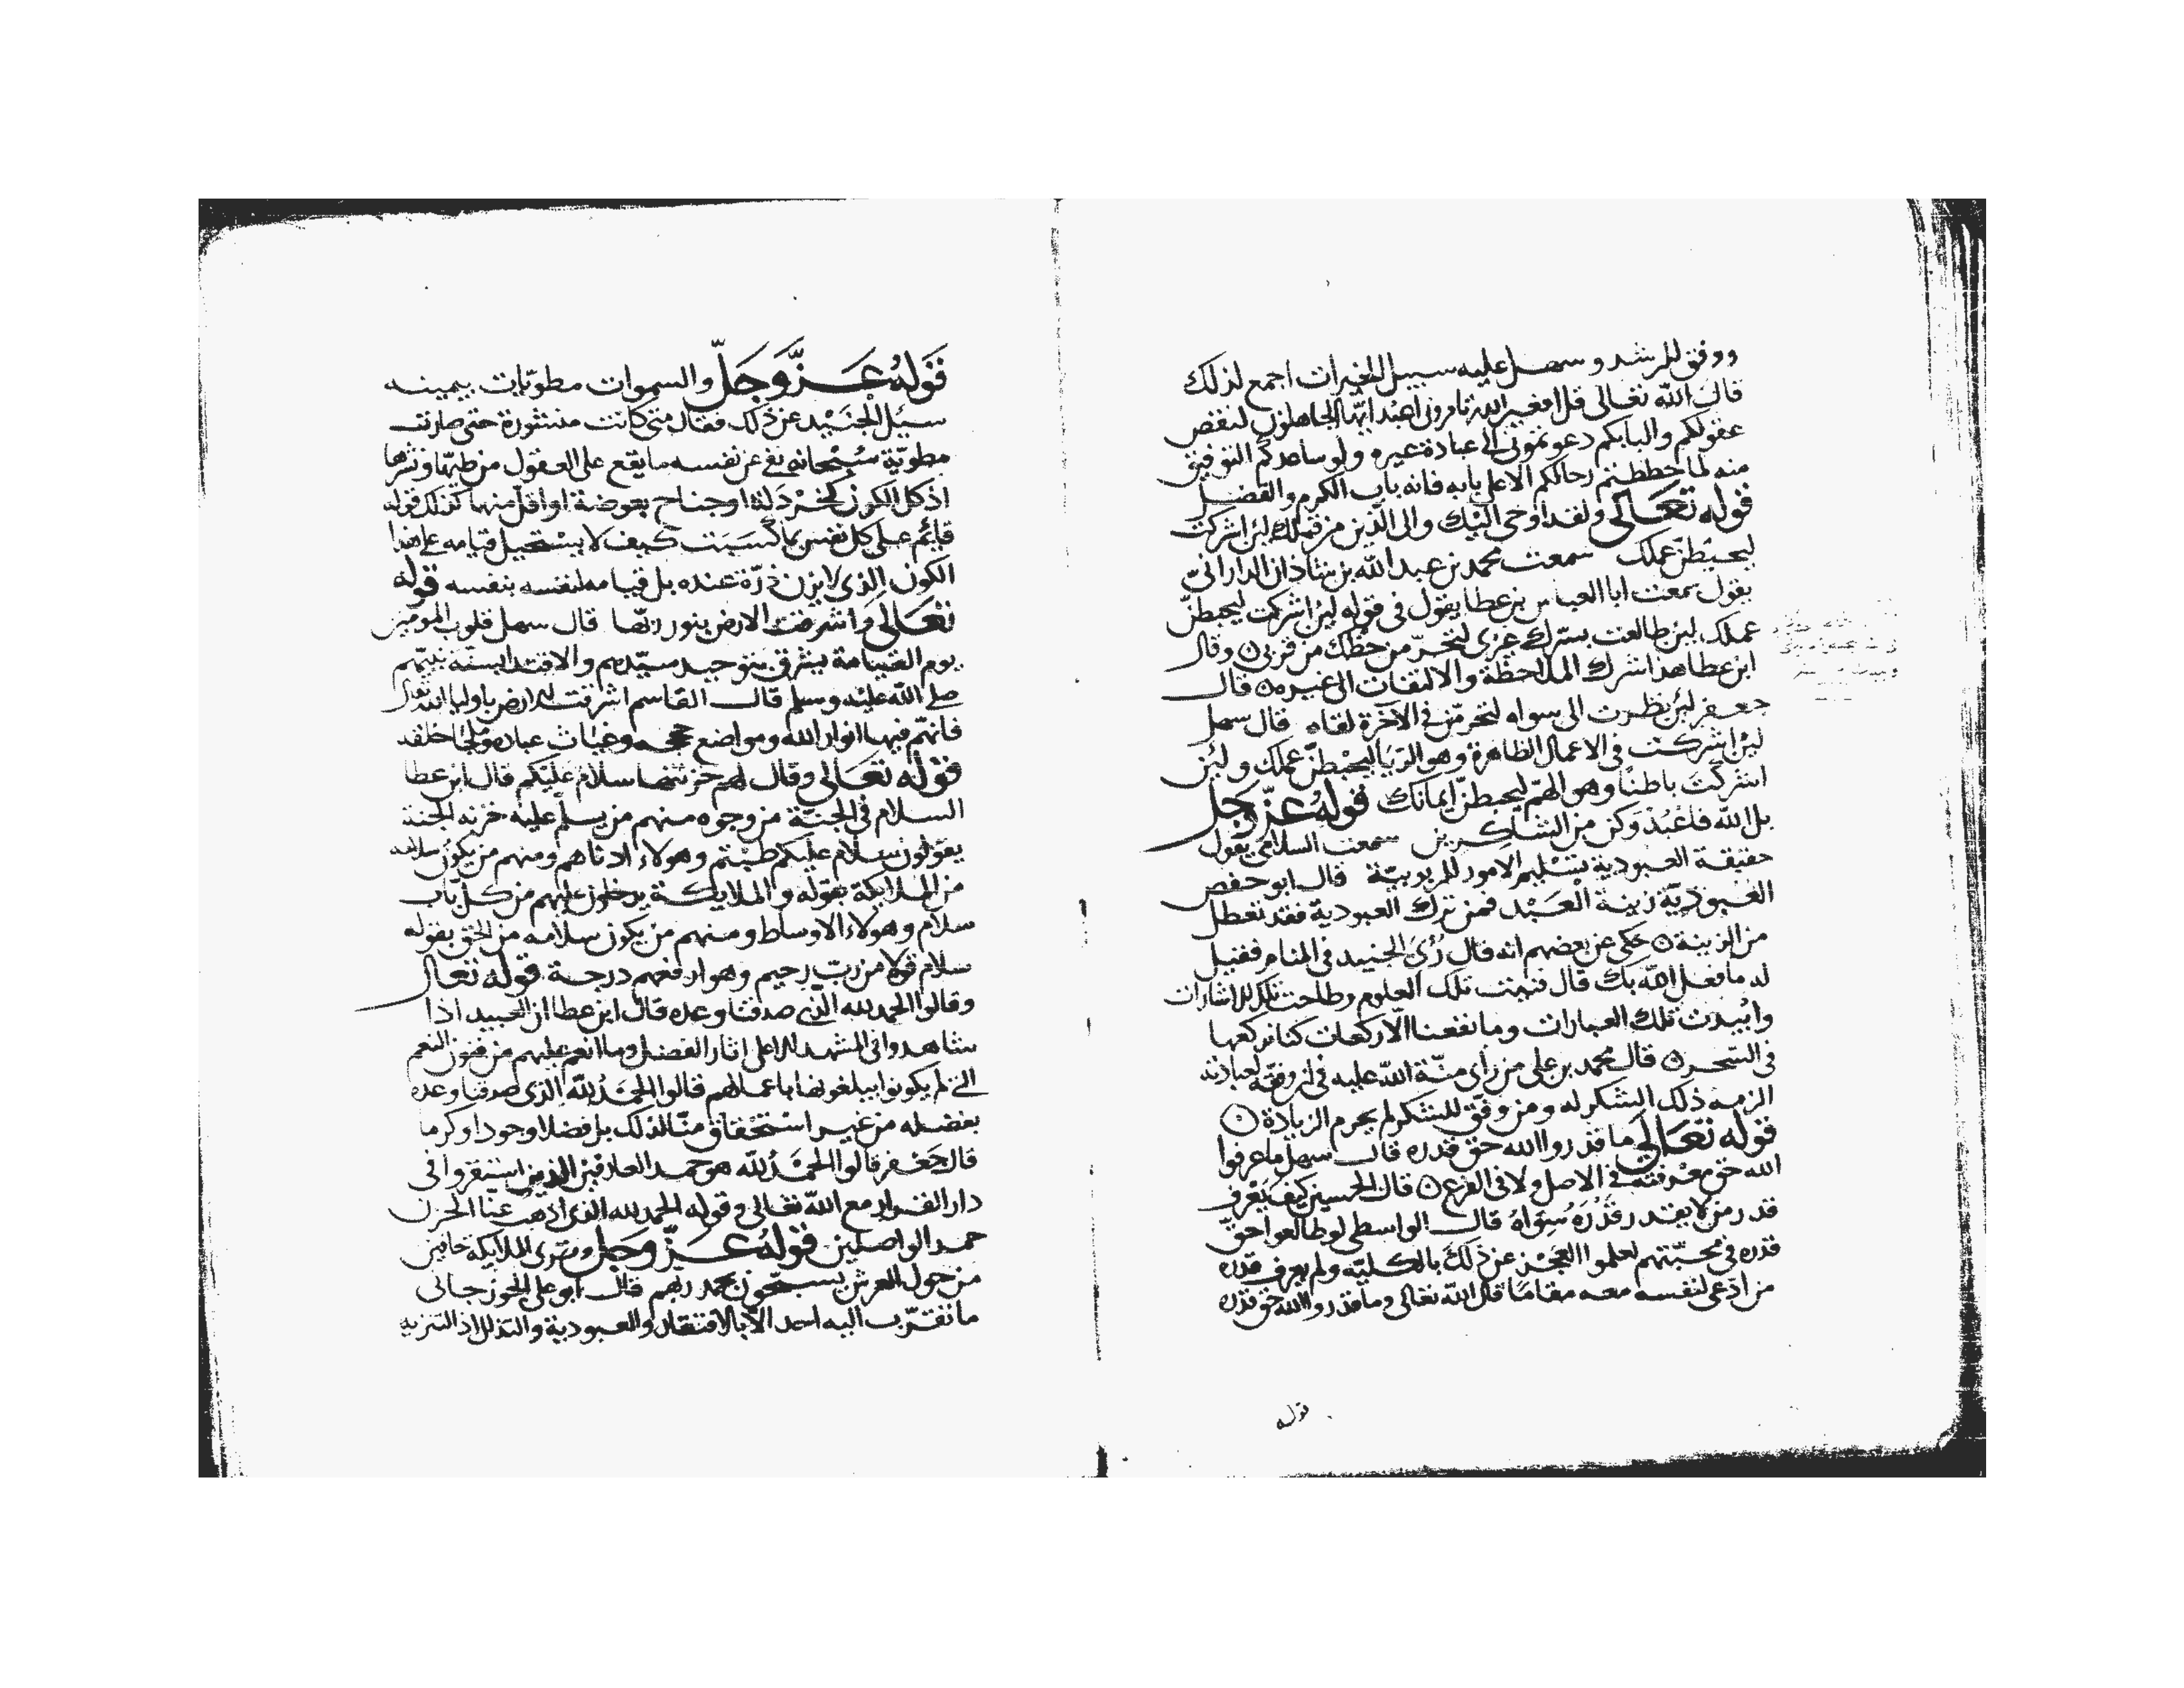 ووفق للرشد وسهل عليه سبيل الخيرات اجمع لذلك
قال الله تعالى قل افغير الله تامروني اعبد ايها الجاهلون لنقص
عقولكم والبابكم دعوتموني الى عبادة غيره ولو ساعدكم التوفيق
منه لما حططتم رحالكم الا على بابه فانه باب الكرم والفضل
قوله تعالى ولقد اوحى اليك والى الذين من قبلك لئن اشركت
ليحبطن عملك سمعت محمد بن عبد الله بن شاذان الداراني
يقول سمعت ابا العباس بن عطا يقول في قوله لئن اشركت ليحبطن
عملك لئن طالعت بسرك غيرى لتخسرن من حظك من قربى وقال
ابن عطا هذا شرك الملاحظة والالتفات الى غيره قال
جعفر لئن نظرت الى سواه لتحرمن في الآخرة لقاه قال سهل
لئن اشركت في الاعمال الظاهرة وهو الريا ليحبطن عملك ولئن
اشركت باطنا وهو الهم ليحبطن ايمانك قوله عز وجل
بل الله فاعبد وكن من الشاكرين سمعت السلامى يقول
حقيقة العبودية تسليم الامور للربوبية قال ابو حفص
العبودية زينة العبد فمن ترك العبودية فقد تعطل
من الزينة حكى عن بعضهم انه قال رؤى الجنيد في المنام فقيل
له ما فعل الله بك قال فنيت تلك العلوم وطاحت تلك الاشارات
وابيدت تلك العبارات وما نفعنا الا ركعات كنا نركعها
في السحر قال محمد بن علي من راى منة الله عليه في ان وفقه لعبادته
الزمه ذلك الشكر له ومن وفق للشكر لم يحرم الزيادة
قوله تعالى ما قدروا الله حق قدره قال سهل ما عرفوا
الله حق معرفته في الاصل ولا في الفرع قال الحسين كيف يعرف
قدر من لا يقدر قدره سواه قال الواسطى لو طالعوا حق
قدره في محبتهم لعلموا العجز عن ذلك بالكلية ولم يعرف قدره
من ادعى لنفسه معه مقاما قال الله تعالى وما قدروا الله حق قدره
قوله
قوله عز وجل والسموات مطويات بيمينه
سئل الجنيد عن ذلك فقال متى كانت منشورة حتى صارت
مطوية سبحانه نفى عن نفسه ما يقع على العقول من طيها ونشرها
اذ كل الكون كخردلة او جناح بعوضة او اقل منها كذلك قوله
قائم على كل نفس بما كسبت كيف لا يستحيل قيامه على هذا
الكون الذى لا يزن ذرة عنده بل قيامه لنفسه بنفسه قوله
تعالى واشرقت الارض بنور ربها قال سهل قلوب المومنين
يوم القيامة يشرق بتوحيد سيدهم والاقتدا بسنة نبيهم
صلى الله عليه وسلم قال القاسم اشرقت الارض باوليا الله
فانهم فيها انوار الله ومواضع حججه وغياث عباده وملجا خلقه
قوله تعالى وقال لهم خزنتها سلام عليكم قال ابن عطا
السلام في الجنة من وجوه منهم من يسلم عليه خزنه الجنة
يقولون سلام عليكم طبتم وهولاء ادناهم ومنهم من يكون سلامه
من الملايكة بقوله والملايكة يدخلون عليهم من كل باب
سلام وهولاء الاوساط ومنهم من يكون سلامه من الحق بقوله
سلام قولا من رب رحيم وهو ارفعهم درجة قوله تعال
وقالوا الحمد لله الذى صدقنا وعده قال ابن عطا ان العبيد اذا
شاهدوا في المشهد الاعلى اثار الفضل وما انعم عليهم من فنون النعم
التى لم يكونوا يبلغونها باعمالهم قالوا الحمد لله الذى صدقنا وعده
بفضله من غير استحقاق منا لذلك بل فضلا وجودا وكرما
قال جعفر قالوا الحمد لله هو حمد العارفين الذين استقروا في
دار القرار مع الله تعالى وقوله الحمد لله الذى اذهب عنا الحزن
حمد الواصلين قوله عز وجل وترى الملايكة حافين
من حول العرش يسبحون بحمد ربهم قال ابو على الجوزجانى
ما تقرب اليه احد الا بالافتقار والعبودية والتذلل اذ التنزيه